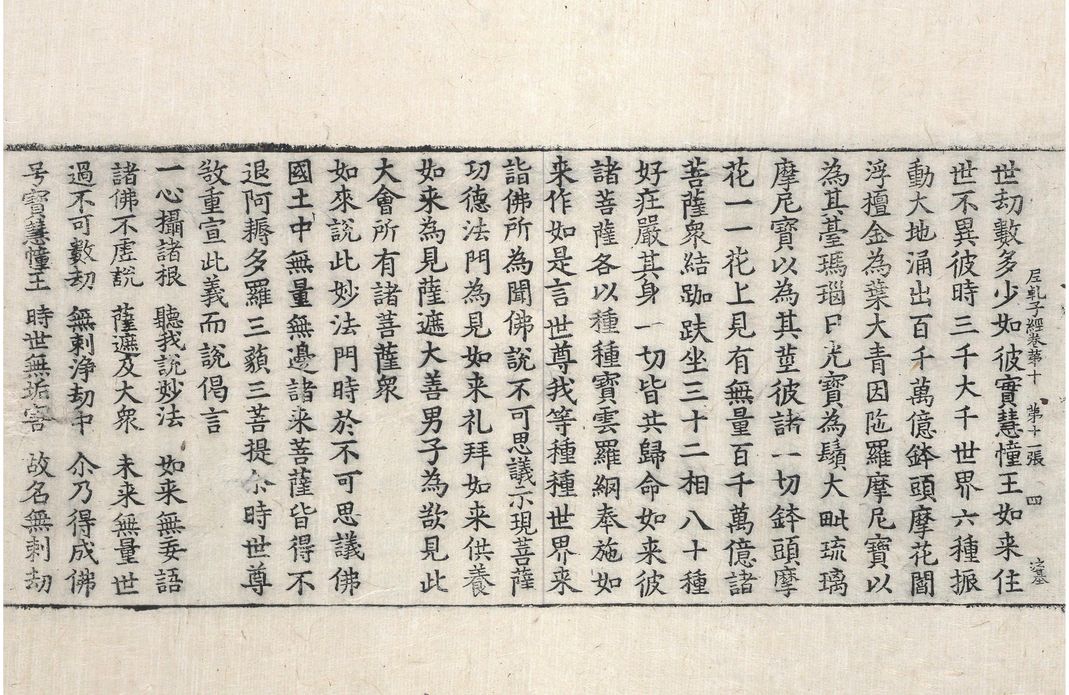 尼乾子經卷第十　第十一張　四
世劫數多少如彼寶慧憧王如来住
世不異彼時三千大千世界六種振
動大地涌出百千萬億鉢頭摩花閻
浮擅金為葉大青因陁羅摩尼寶以
為其臺瑪瑙日光寶為鬚大毗琉璃
摩尼寶以為其莖彼諸一切鉢頭摩
花一一花上見有無量百千萬億諸
菩薩衆結跏趺坐三十二相八十種
好荘嚴其身一切皆共歸命如来彼
諸菩薩各以種種寶雲羅網奉施如
来作如是言世尊我等種種世界来
詣佛所為聞佛說不可思議示現菩薩
功德法門為見如来礼拜如来供養
如来為見薩遮大善男子為欲見此
大會所有諸菩薩衆
如來說此妙法門時於不可思議佛
國土中無量無邊諸来菩薩皆得不
退阿耨多羅三藐三菩提尒時世尊
欲重宣此義而說偈言
一心攝諸根　聽我說妙法　如来無妄語
諸佛不虛說　薩遮及大衆　未来無量世
過不可數劫　無刺淨劫中　尒乃得成佛
号寶慧憧王　時世無垢害　故名無刺劫